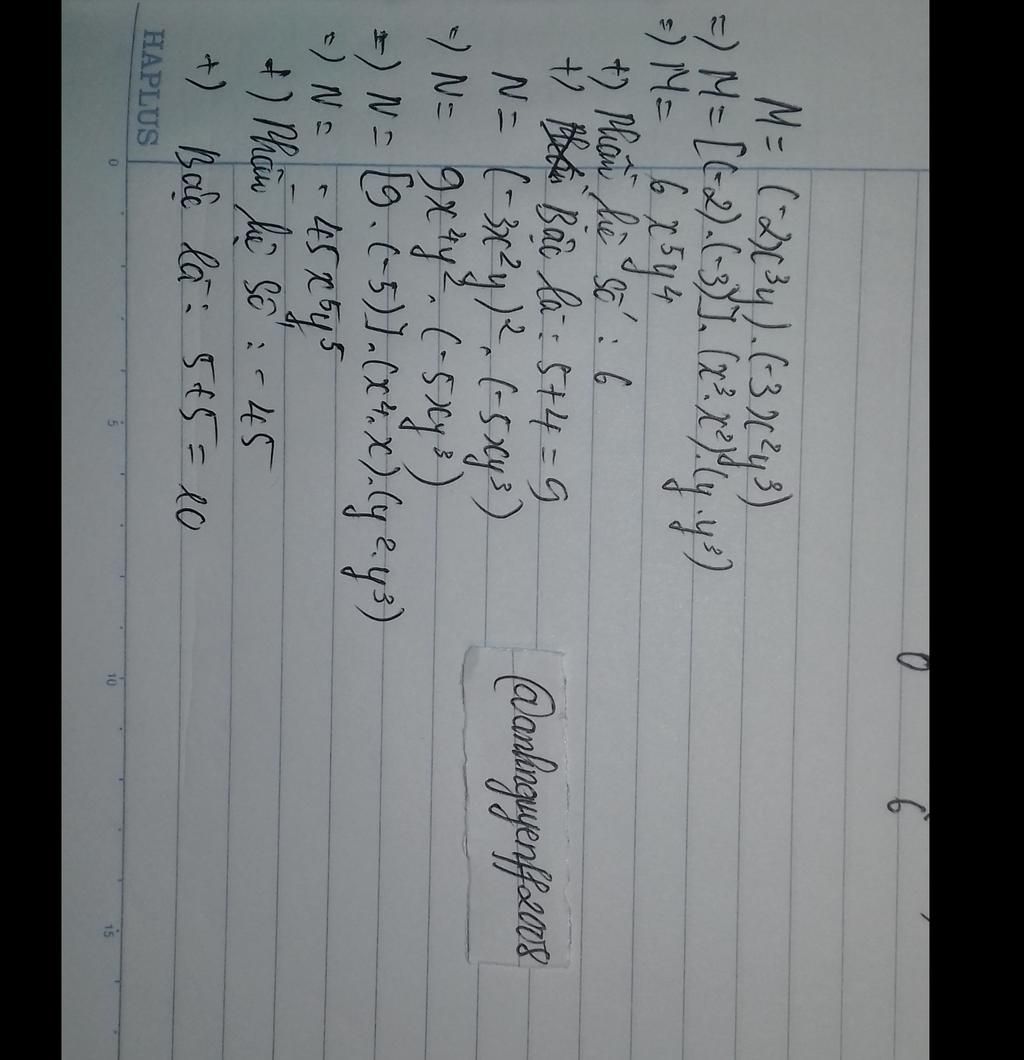 0 6
M = (-2x³y).(-3x²y³)
=) M = [(-2).(-3)].(x³.x²).(y.y³)
=) M = 6x⁵y⁴
+) Phần hệ số : 6
+) Bậc là : 5+4 = 9
N = (-3x²y)².(-5xy³)
=) N = 9x⁴y².(-5xy³)
=) N = [9.(-5)].(x⁴.x).(y².y³)
=) N = -45x⁵y⁵
+) Phần hệ số : -45
+) Bậc là : 5+5 = 10
@anhnguyenff2008
HAPLUS
0 5 10 15